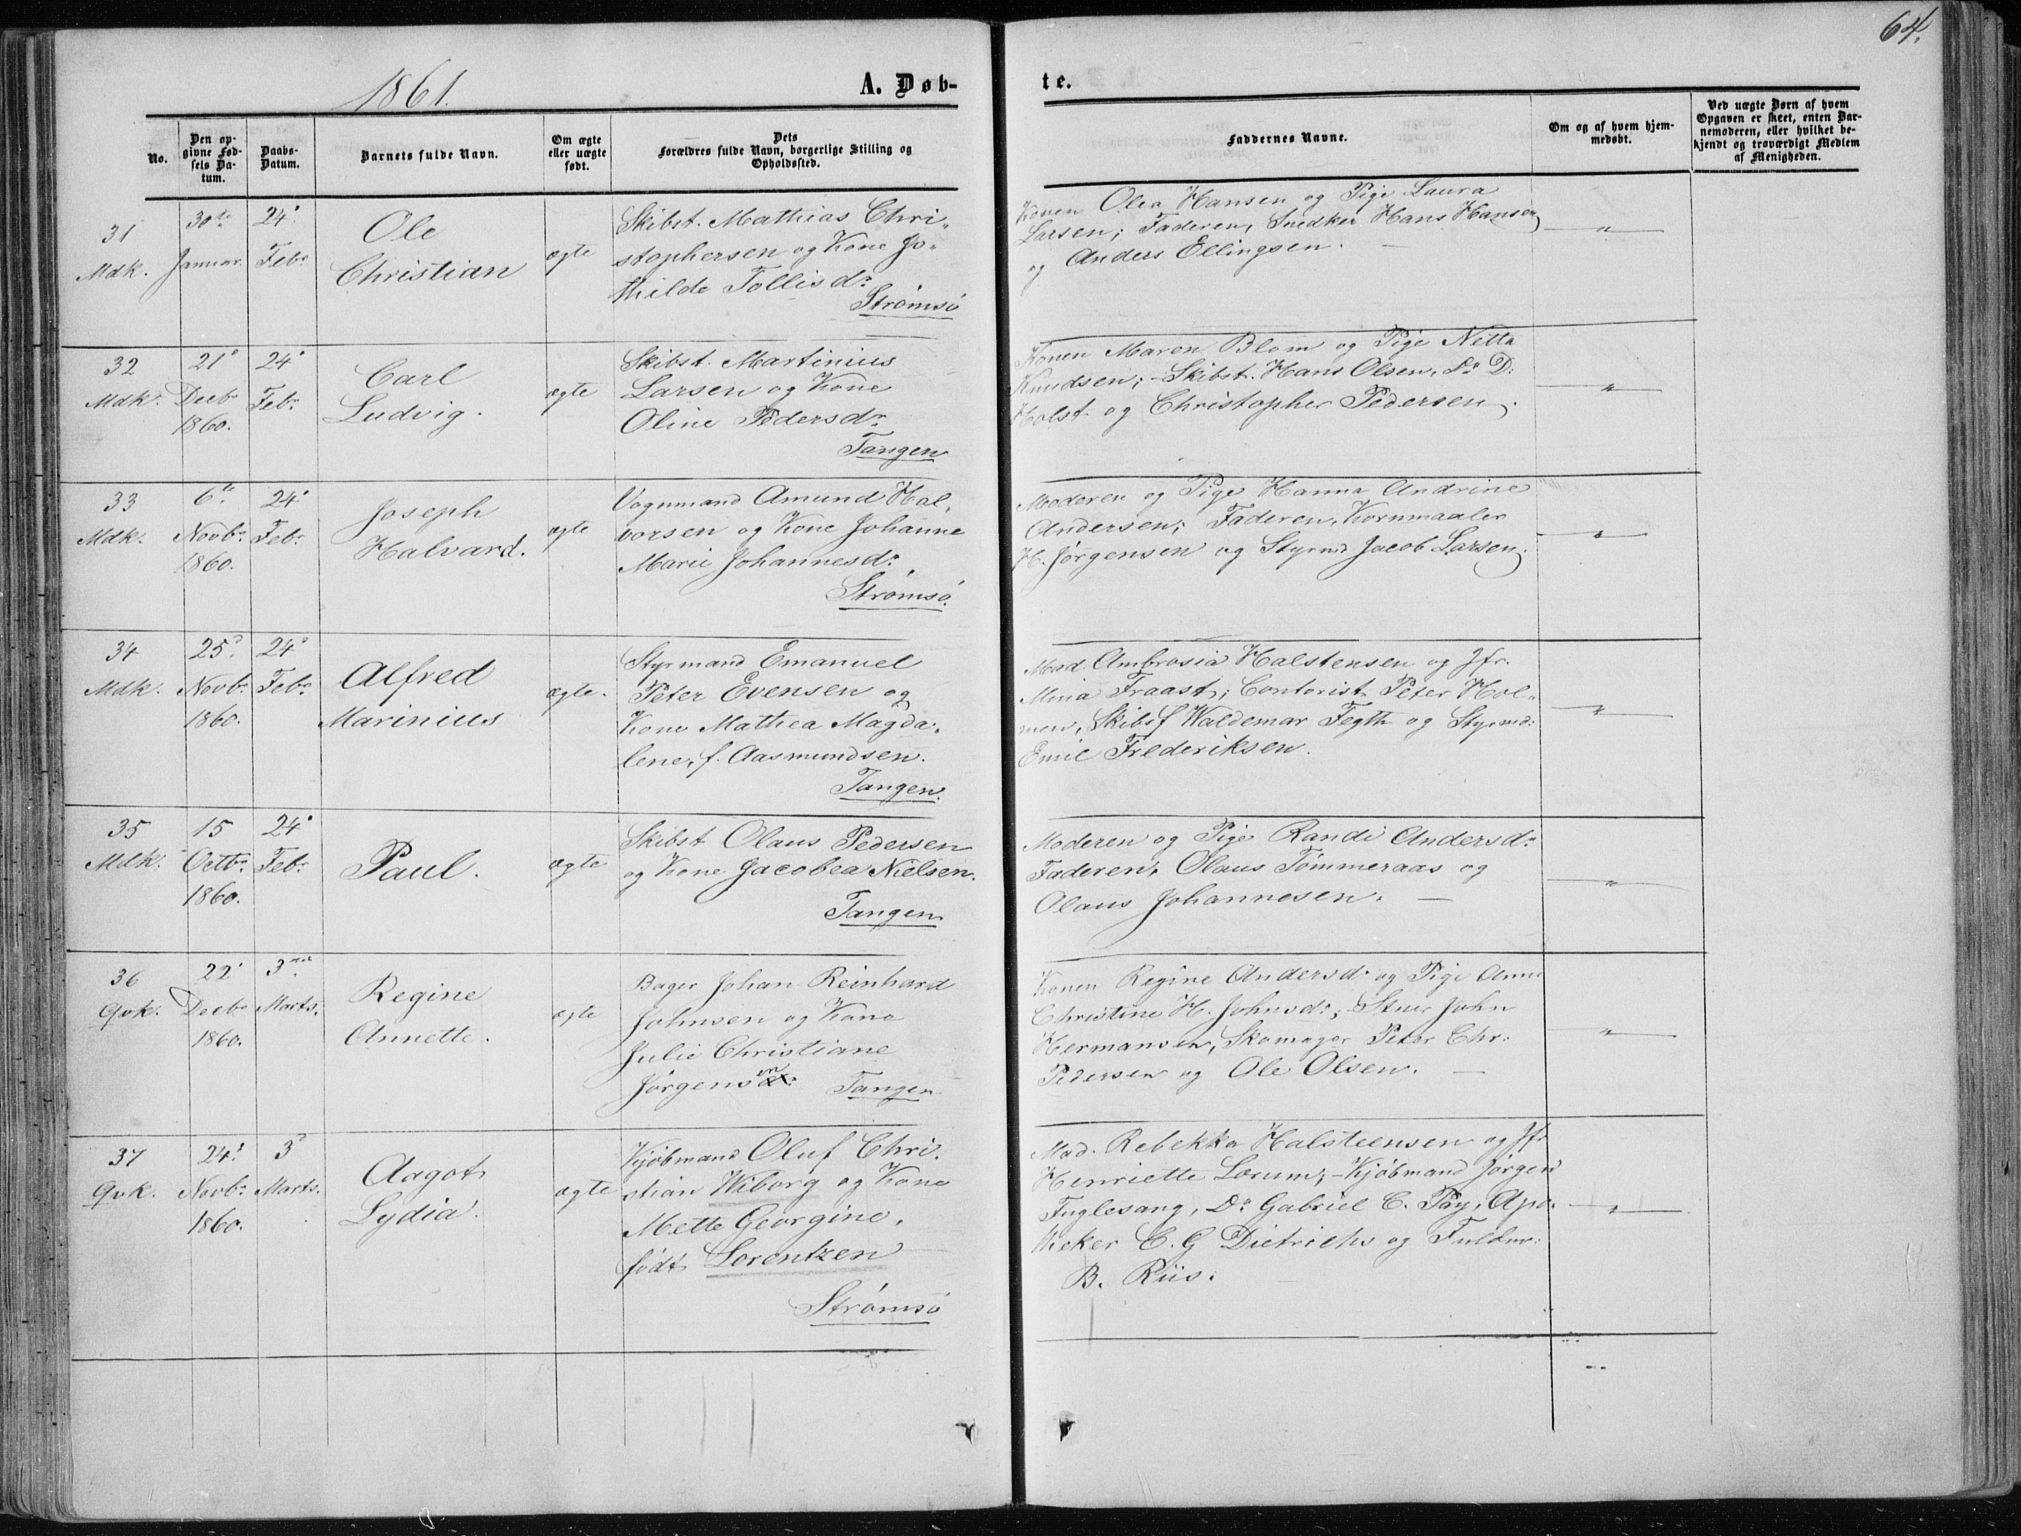 64.
1861.
A. Døb-
te.
No.
Den op-
givne Fød-
sels Da-
tum.
Daabs-
Datum.
Barnets fulde Navn.
Om ægte
eller uægte
født.
Dets
Forældres fulde Navn, borgerlige Stilling og
Opholdssted.
Faddernes Navne.
Om og af hvem hjem-
medøbt.
Ved uægte Børn af hvem
Opgaven er skeet, enten Bar-
nemoderen, eller hvilket be-
kjendt og troværdigt Medlem
af Menigheden.
31
Mdk.
30te
Januar.
24'
Febr.
Ole
Christian
ægte
Skibst. Mathias Chri-
stophersen og Kone Jo-
thilde Tollisdr.
Strømsø
Konen Olea Hansen og Pige Laura
Larsen; Faderen, Snedker Hans Hansen
og Anders Ellingsen. —
"
32
Mdk.
21'
Decbr
1860.
24'
Febr.
Carl
Ludvig.
ægte
Skibst. Martinius
Larsen og Kone
Oline Pedersdr.
Tangen
Konen Maren Blom og Pige Netta
Knudsen; - Skibst. Hans Olsen, Do D.
Holst og Christopher Pedersen.
"
33
Mdk.
6te
Novbr.
1860.
24'
Febr.
Joseph
Halvard.
ægte
Vognmand Amund Hal-
vorsen og Kone Johanne
Marie Johannesdr.
Strømsø.
Moderen og Pige Hanna Andrine
Andersen; Faderen, Kornmaaler
H. Jørgensen og Styrmd Jacob Larsen.
"
34
Mdk.
25'
Novbr.
1860.
24'
Febr.
Alfred
Marinius
ægte.
Styrmand Emanuel
Peter Evensen og
Kone Mathea Magda-
lene, f. Aasmundsen.
Tangen.
Mad. Ambrosia Halstensen og Jfr.
Mina Fraast; Contorist Peter Hol-
men, Skibsf Waldemar Fegth og Styrmd:
Emil Frederiksen.
"
35
Mdk.
15
Octbr.
1860.
24'
Febr.
Paul.
ægte
Skibst Olaus Pedersen
og Kone Jacobea Nielsen.
Tangen
Moderen og Pige Randi Andersdr.
Faderen, Olaus Tømmeraas og
Olaus Johannesen. —
"
36
Qvk.
22'
Decbr
1860.
3die
Marts.
Regine
Annette.
ægte
Bager Johan Reinhard
Johnsen og Kone
Julie Christiane
Jørgensen Tangen
Konen Regine Andersdr. og Pige Anne
Christine H. Johnsdr.; - Stuer John
Hermansen, Skomager Peter Chr.
Pedersen og Ole Olsen. —
"
37
Qvk.
24'
Novbr.
1860.
3'
Marts.
Aagot
Lydia.
ægte
Kjøbmand Oluf Chri-
stian Wiborg og Kone
Mette Georgine,
født Lorentzen
Strømsø
Mad. Rebekka Halsteensen og Jfr
Henriette Lorum; - Kjøbmand Jørgen
Fuglesang, Do Gabriel C. Pay, Apo-
theker C. G Dietrichs og Fuldm:
B. Riis.
"